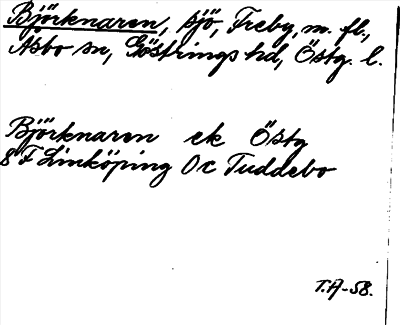 Björknaren, sjö, Treby, m. fl.,
Åsbo sn, Göstrings hd, Östg. l.
Björknaren ek Östg
8 F Linköping Oc Tuddebo
T.A-58.